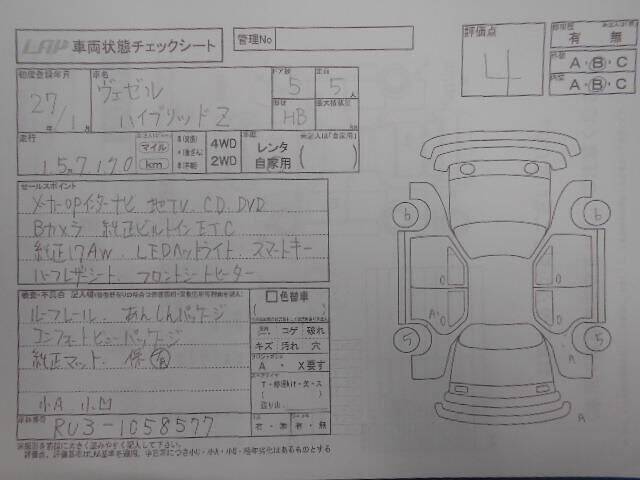 LAP 車両状態チェックシート
管理No
評価点
4
修復歴
有 無
外装
A・B・C
内装
A・B・C
初度登録年月
27年/1月
車名
ヴェゼル
ハイブリッドZ
ドア数
5
定員
5人
形状
HB
最大積載量
走行
15,7170
マイル
km
4WD
2WD
車歴
未記入は「自家用」
レンタ
自家用
セールスポイント
メーカーOPインターナビ 地TV. CD. DVD
Bカメラ 純正ビルトインETC
純正17AW. LEDヘッドライト スマートキー
ハーフレザーシート. フロントシートヒーター
色替車
ルーフレール. あんしんパッケージ
コンフォートビューパッケージ
純正マット. 保有
小A 小凹
コゲ 破れ
キズ 汚れ 穴
A ・ X要す
有・無
有・無
車台番号
RU3-1058577
6
6
5
5
A
A
A